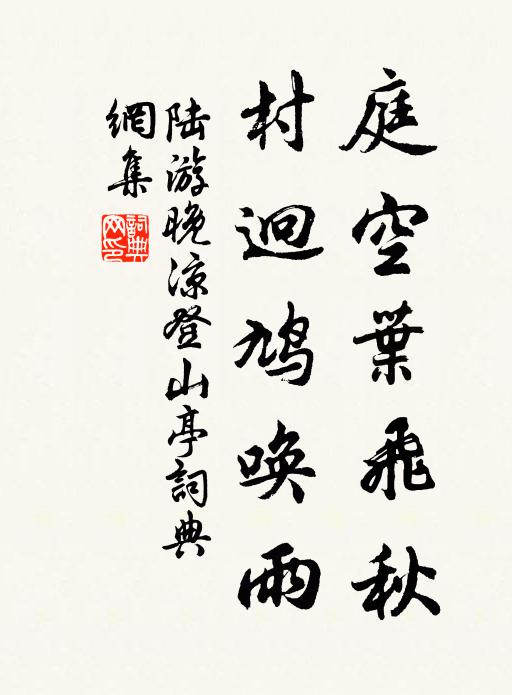 庭空葉飛秋
村迥鳩喚雨
陸游晚涼登山亭詞典
網集
詞典
网印